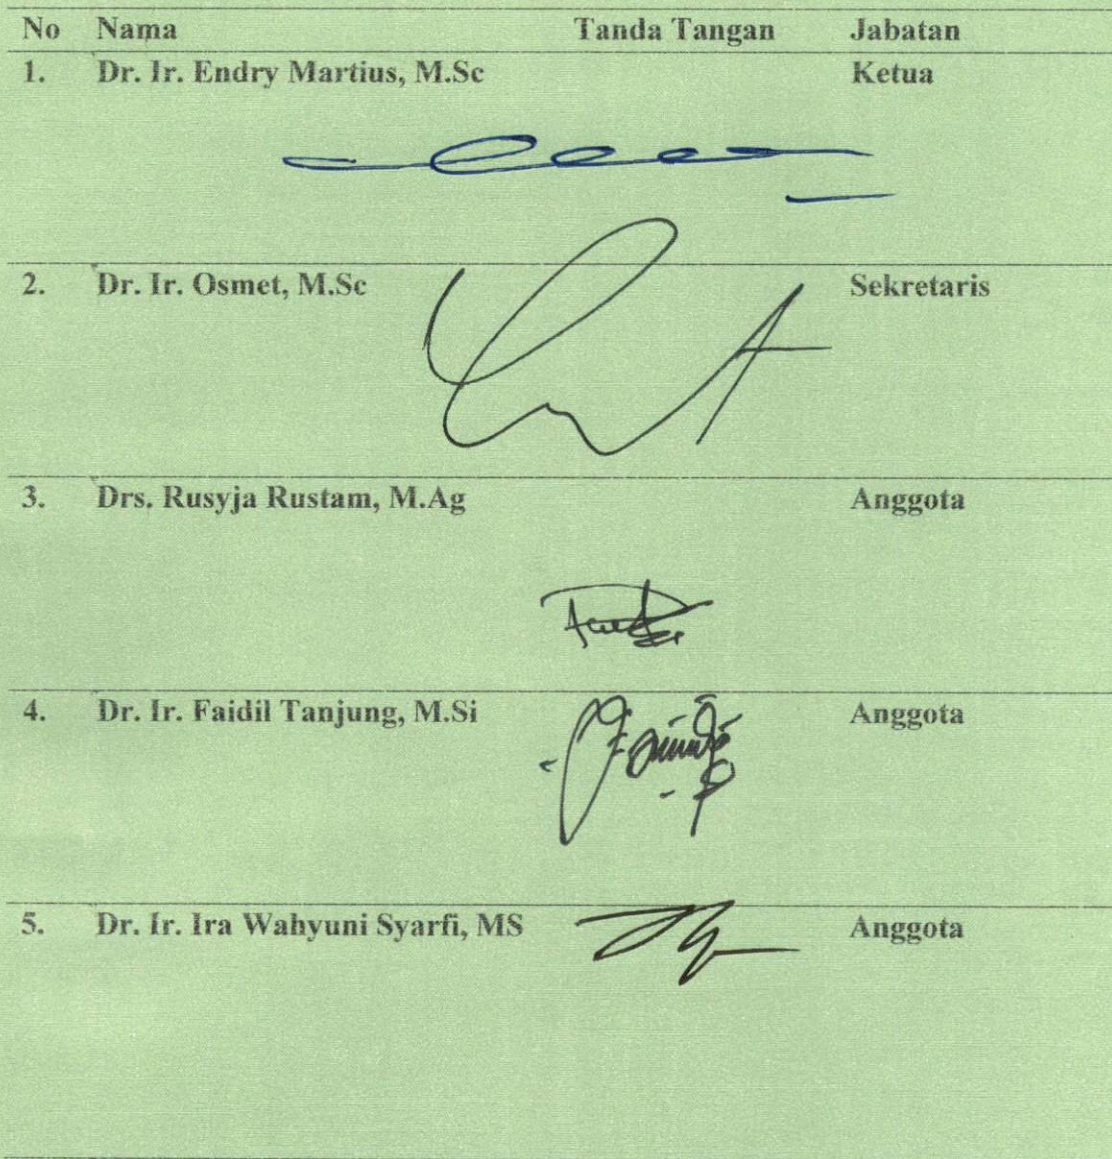 No Nama Tanda Tangan Jabatan
1. Dr. Ir. Endry Martius, M.Sc Ketua
2. Dr. Ir. Osmet, M.Sc Sekretaris
3. Drs. Rusyja Rustam, M.Ag Anggota
4. Dr. Ir. Faidil Tanjung, M.Si Anggota
5. Dr. Ir. Ira Wahyuni Syarfi, MS Anggota